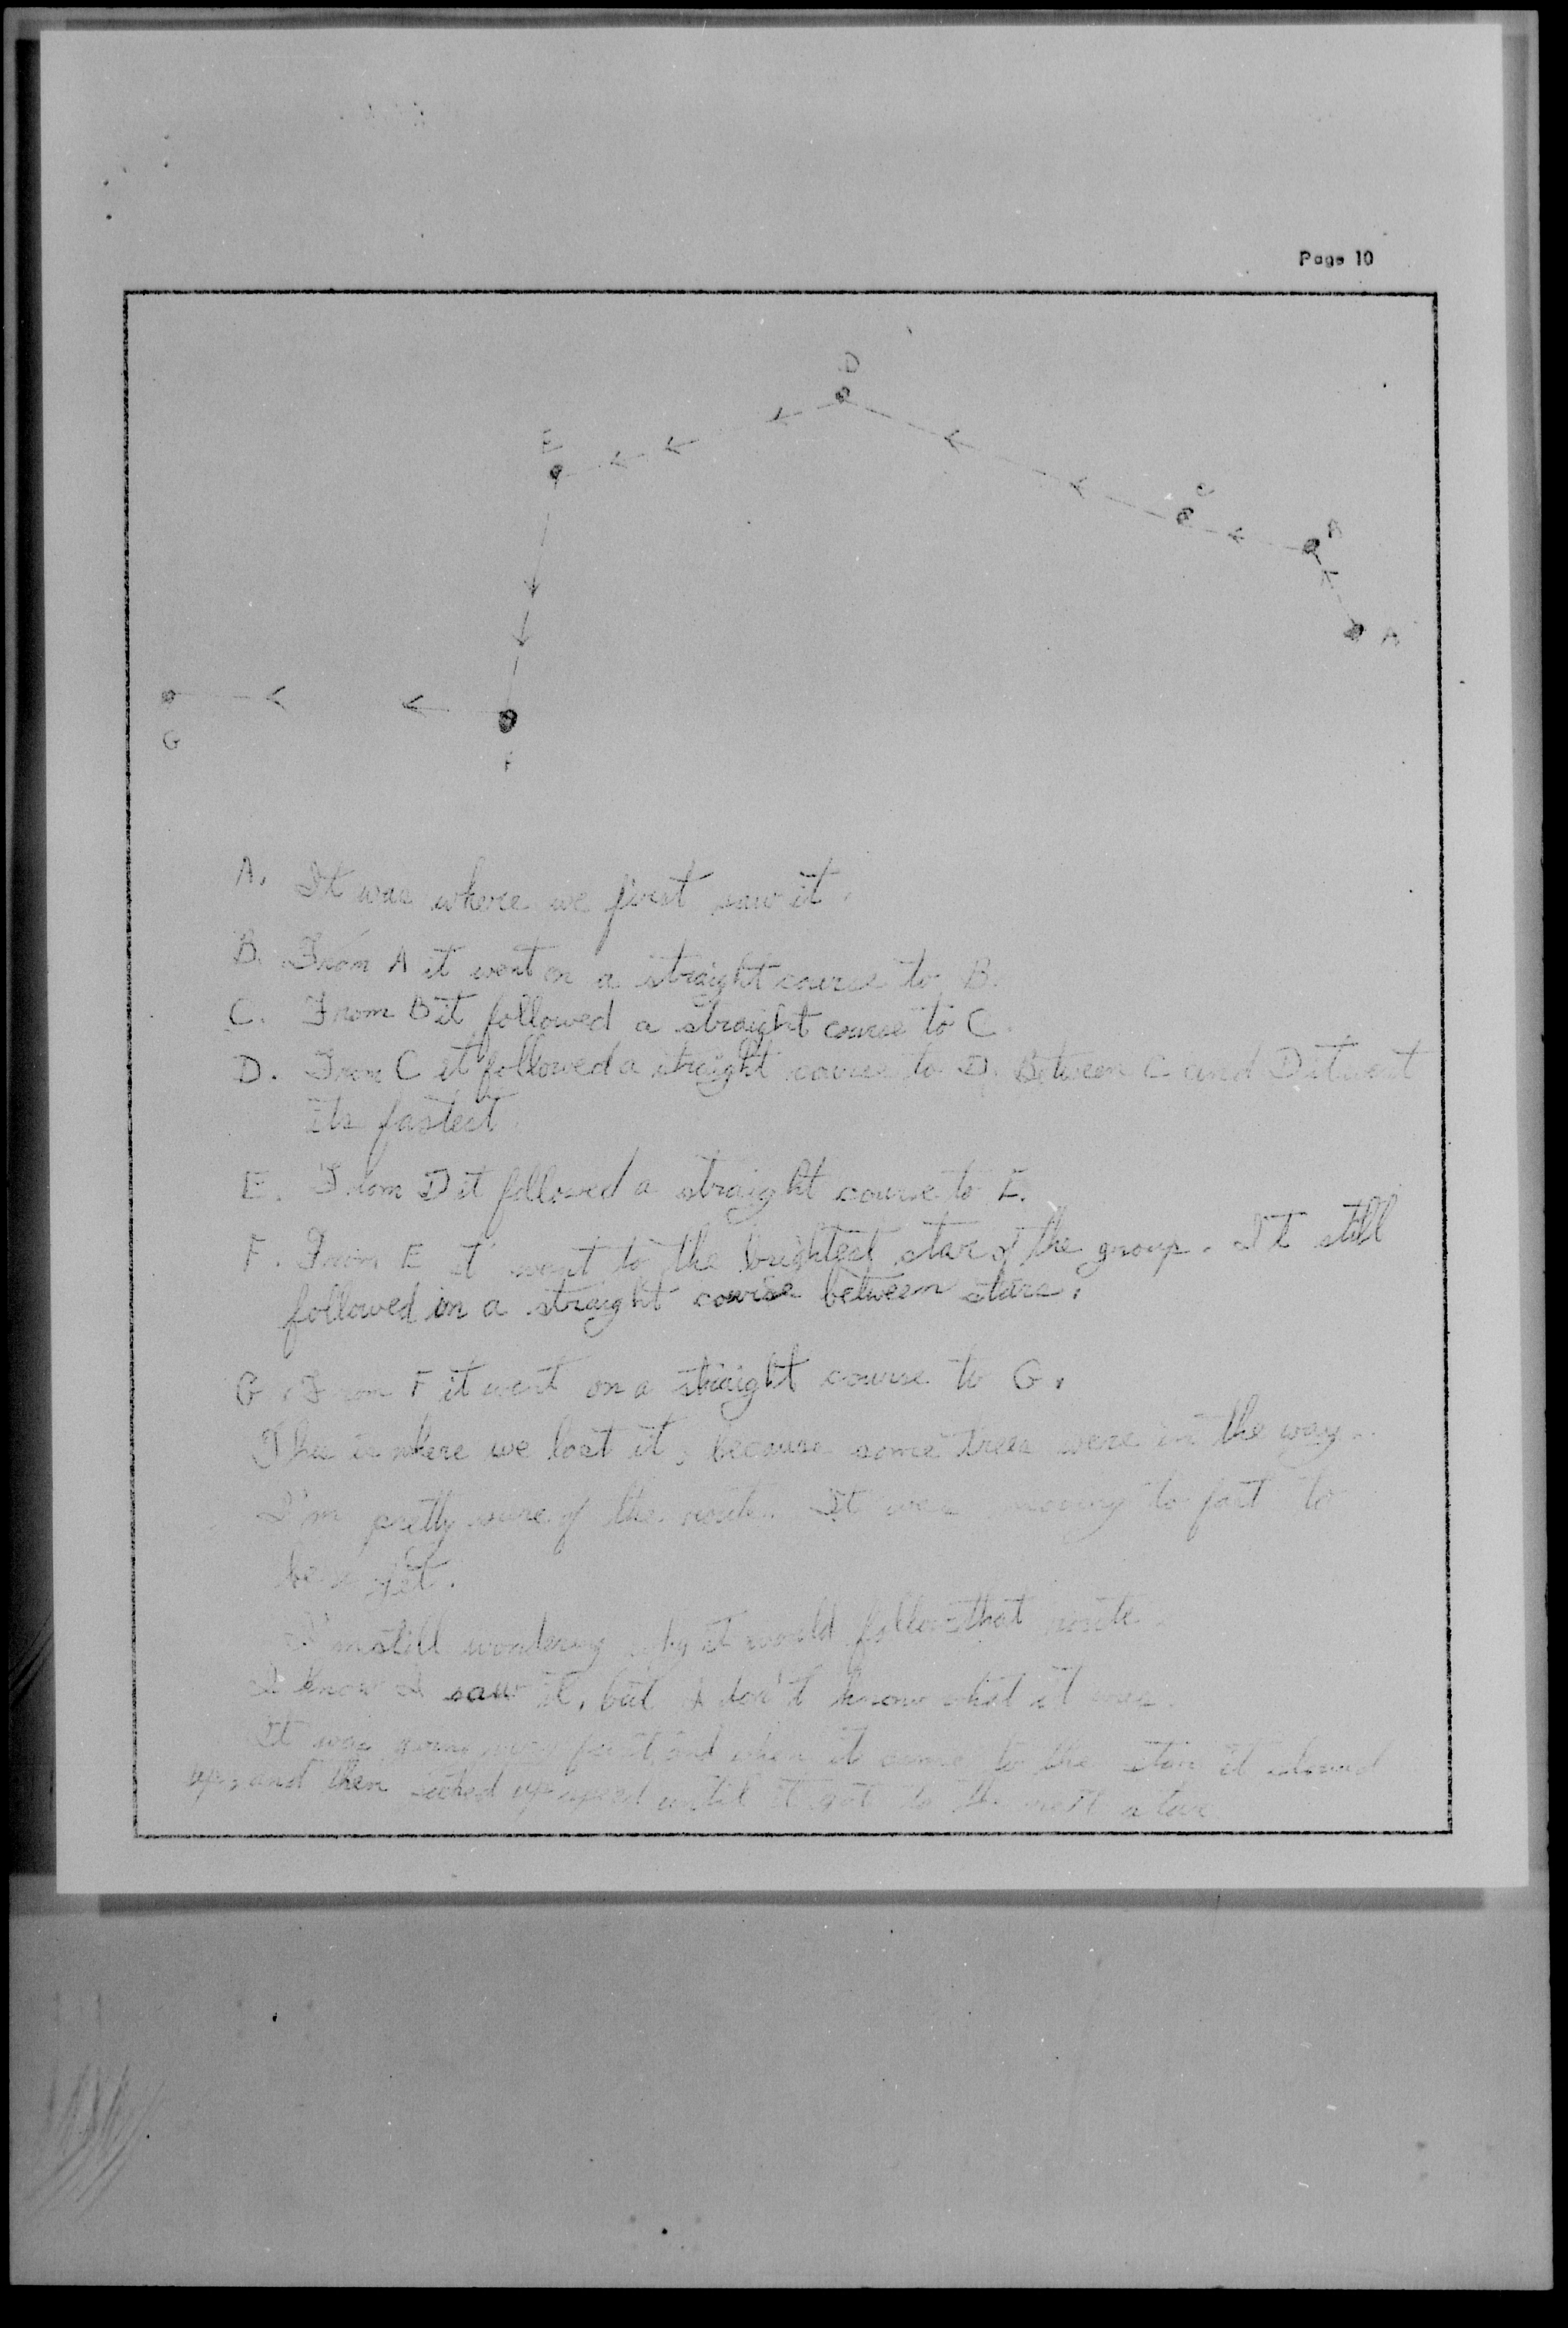 Page 10
D
E
C
B
A
G
F
A. It was where we first saw it.
B. From A it went on a straight course to B.
C. From B it followed a straight course to C.
D. From C it followed a straight course to D. Between C and D it went
its fastest.
E. From D it followed a straight course to E.
F. From E it went to the brightest star of the group. It still
followed in a straight course between stars.
G. From F it went on a straight course to G.
This is where we lost it, because some trees were in the way.
I'm pretty sure of the route. It was moving to fast to
be
I'm still wondering why it would follow that route.
I know I saw it, but I don't know what it was.
It was going very fast, and when it came to the star it slowed
up, and then picked up speed until it got to the next star